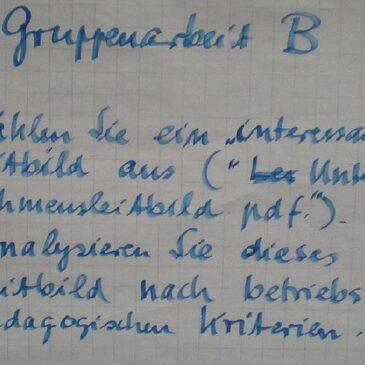 Gruppenarbeit B
ählen Sie ein „interessa
itbild aus ("Unt
hmensleitbild pdf.").
nalysieren Sie dieses
itbild nach betriebs
dagogischen Kriterien.